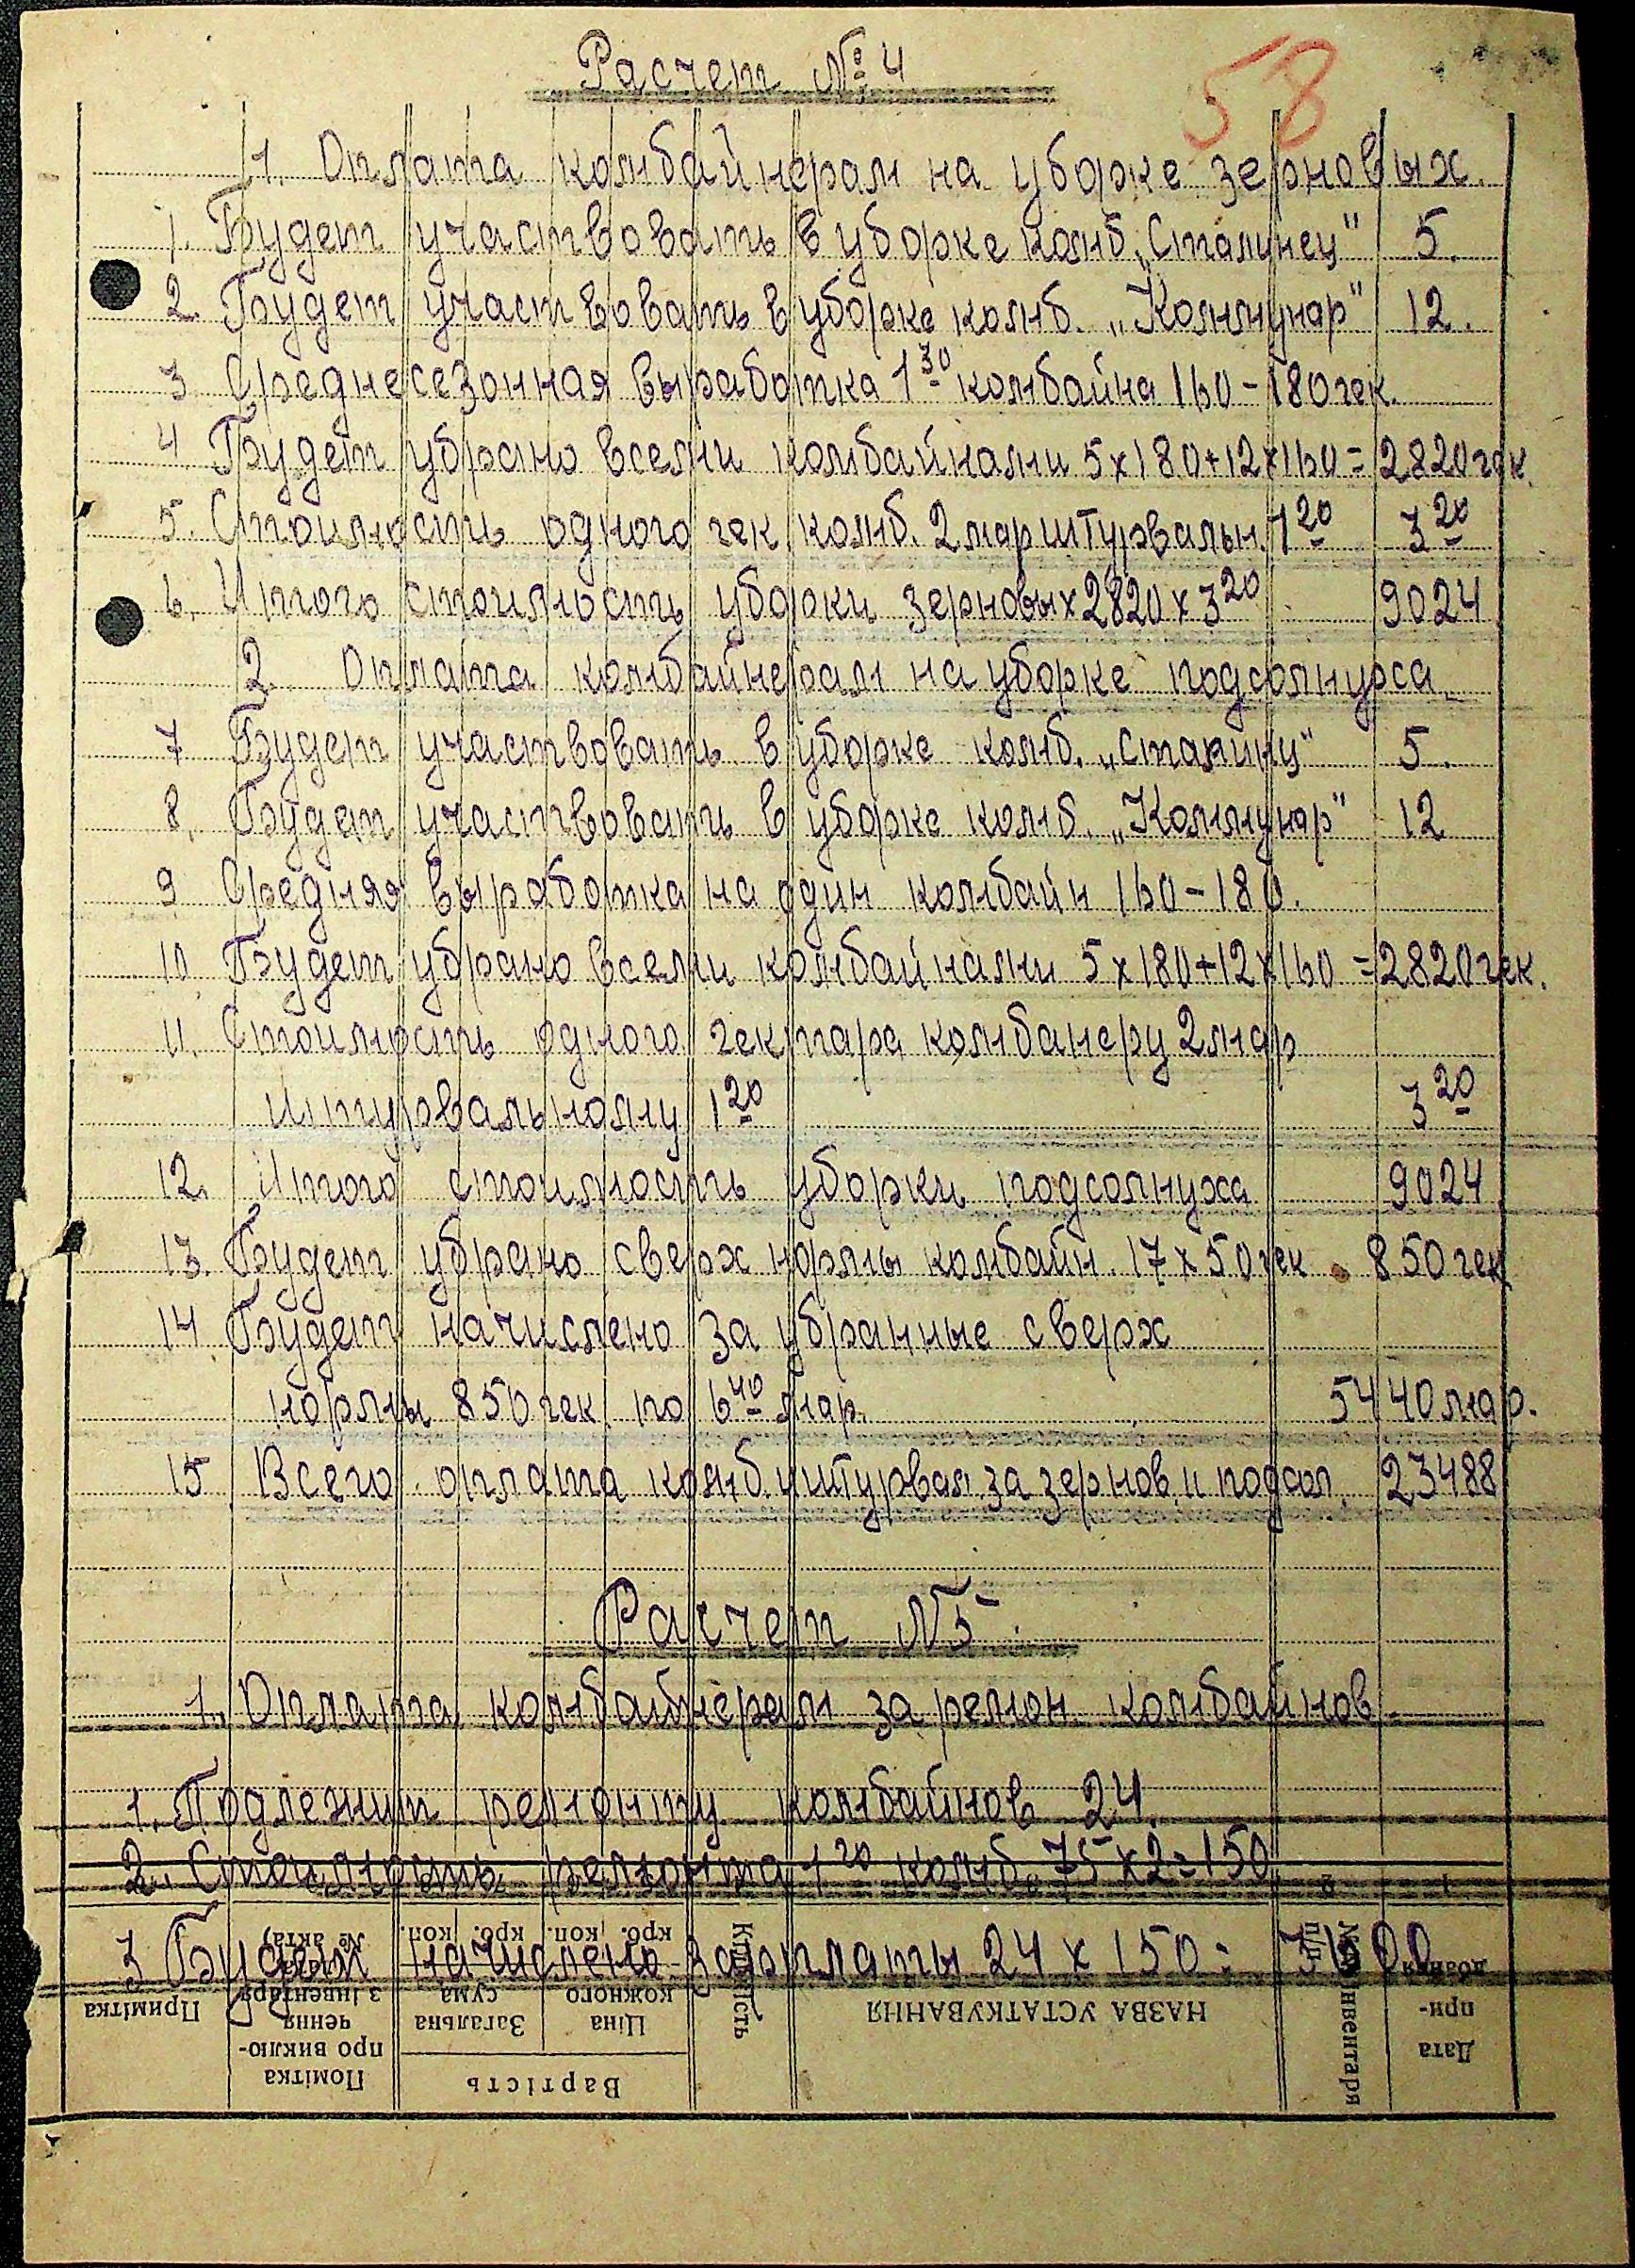 Расчет №4
58
1. Оплата комбайнерам на уборке зерновых.
1. Будет участвовать в уборке комб. „Сталинец" 5.
2. Будет участвовать в уборке комб. „Коммунар" 12.
3 Среднесезонная выработка 1го комбайна 160-180 гек.
4. Будет убрано всеми комбайнами 5x180+12x160= 2820 гек.
5. Стоимость одного гек. комб. 2 мар штурвальн. 1 20 3 20
6. Итого стоимость уборки зерновых 2820 x 3 20 9024
2. Оплата комбайнерам на уборке подсолнуха
7 Будет участвовать в уборке комб. „Сталинц" 5.
8. Будет участвовать в уборке комб. „Коммунар" 12
9 Средняя выработка на один комбайн 160-180.
10 Будет убрано всеми комбайнами 5x180+12x160 = 2820 гек.
11. Стоимость одного гектара комбанеру 2 мар
штурвальному 1 20 3 20
12. Итого стоимость уборки подсолнуха 9024
13. Будет убрано сверх нормы комбайн. 17 x 50 гек 850 гек
14 Будет начислено за убранные сверх
нормы 850 гек. по 6 40 мар. 5440 мар.
15 Всего оплата комб. штурвал. за зернов. и подсол. 23488
Расчет №5
1. Оплата комбайнерам за ремон. комбайнов
1. Подлежит ремонту комбайнов 24.
2. Стоимость ремонта 1го комб. 75x2=150
3 Будет начислено зарплаты 24 x 150 = 3600
Примітка
Помітка про виключення з інвентаря № акта)
Вартість
Загальна сума
крб. коп.
Ціна кожного
крб. коп.
Кількість
НАЗВА УСТАТКУВАННЯ
інвентаря
Дата придбання